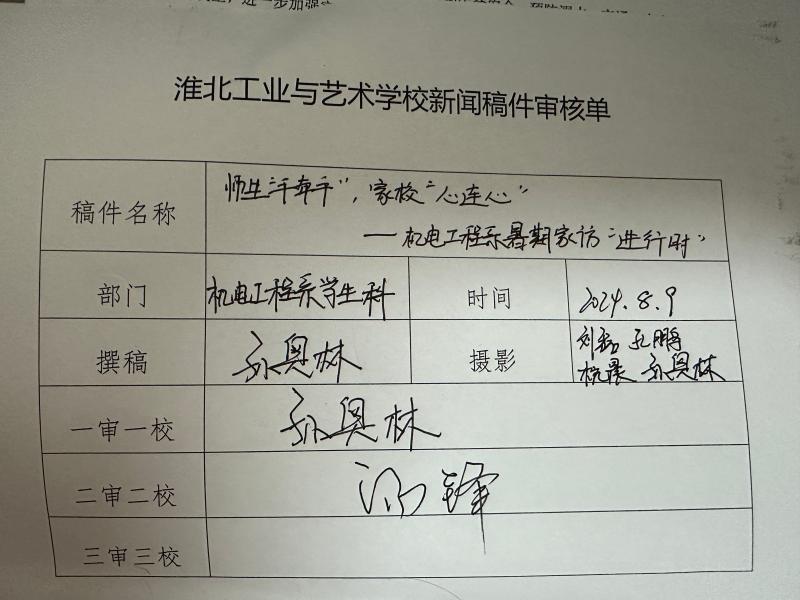 淮北工业与艺术学校新闻稿件审核单
稿件名称
师生“手牵手”，家校“心连心”
—机电工程系暑期家访“进行时”
部门 机电工程系学生科 时间 2024.8.9
撰稿 孙奥林 摄影
孔鹏
孙奥林
一审一校 孙奥林
二审二校
三审三校